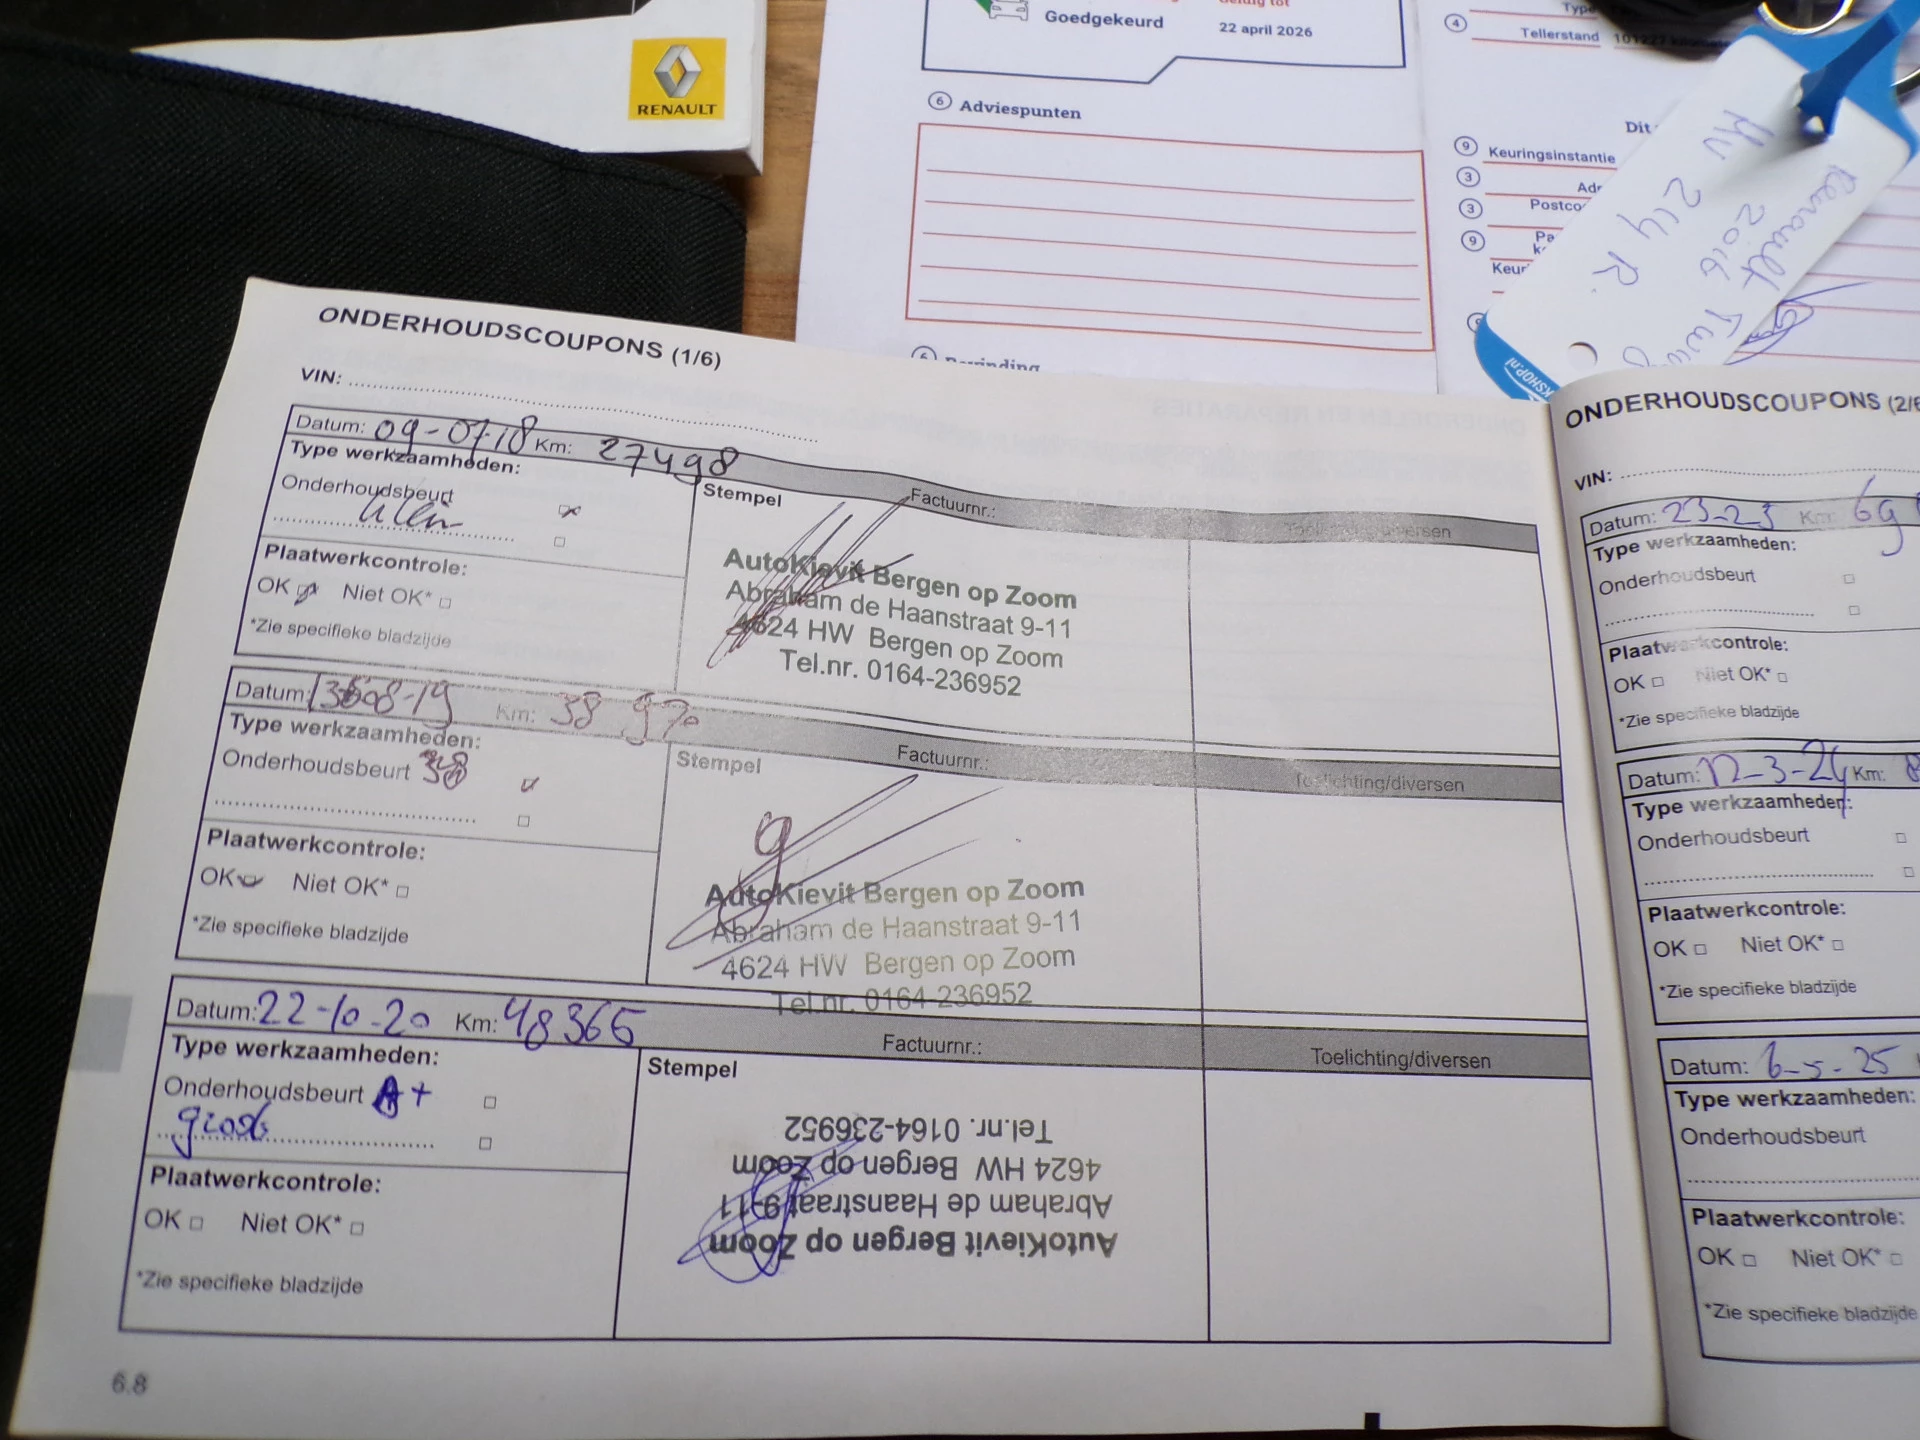 RENAULT
Goedgekeurd
Geldig tot
22 april 2026
6 Adviespunten
4 Tellerstand
Dit
9 Keuringsinstantie
3
3
9
Renault
2016
HV
214 R
KSHOP.nl
ONDERHOUDSCOUPONS (1/6)
VIN:
Datum: 09-07-18 Km: 27498
Type werkzaamheden:
Onderhoudsbeurt
klein
Plaatwerkcontrole:
OK Niet OK*
*Zie specifieke bladzijde
Stempel
Factuurnr.:
Toelichting/diversen
AutoKievit Bergen op Zoom
Abraham de Haanstraat 9-11
4624 HW Bergen op Zoom
Tel.nr. 0164-236952
Datum: Km: 38 970
Type werkzaamheden:
Onderhoudsbeurt
Plaatwerkcontrole:
OK Niet OK*
*Zie specifieke bladzijde
Stempel
Factuurnr.:
Toelichting/diversen
AutoKievit Bergen op Zoom
Abraham de Haanstraat 9-11
4624 HW Bergen op Zoom
Tel.nr. 0164-236952
Datum: 22-10-20 Km: 48365
Type werkzaamheden:
Onderhoudsbeurt A+
groot
Plaatwerkcontrole:
OK Niet OK*
*Zie specifieke bladzijde
Stempel
Factuurnr.:
Toelichting/diversen
AutoKievit Bergen op Zoom
Abraham de Haanstraat 9-11
4624 HW Bergen op Zoom
Tel.nr. 0164-236952
6.8
ONDERHOUDSCOUPONS (2/6
VIN:
Datum: 23-23 Km: 69
Type werkzaamheden:
Onderhoudsbeurt
Plaatwerkcontrole:
OK Niet OK*
*Zie specifieke bladzijde
Datum: 12-3-24 Km: 8
Type werkzaamheden:
Onderhoudsbeurt
Plaatwerkcontrole:
OK Niet OK*
*Zie specifieke bladzijde
Datum: 6-5-25
Type werkzaamheden:
Onderhoudsbeurt
Plaatwerkcontrole:
OK Niet OK*
*Zie specifieke bladzijde